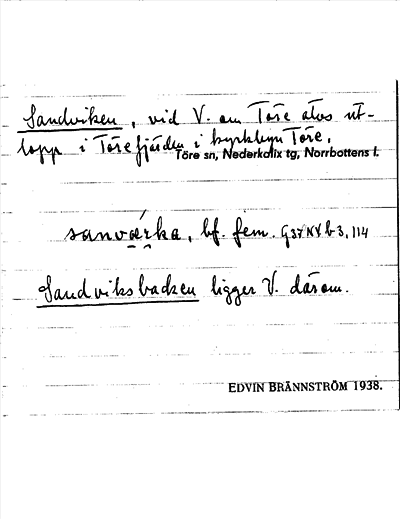 Sandviken, vid V. om Töre älvs ut-
lopp i Törefjärden i kyrkbyn Töre.
Töre sn, Nederkalix tg, Norrbottens l.
sanvæ̀rka, bf. fem. G37NY b3, 114
Sandviksbacken ligger V. därom.
EDVIN BRÄNNSTRÖM 1938.